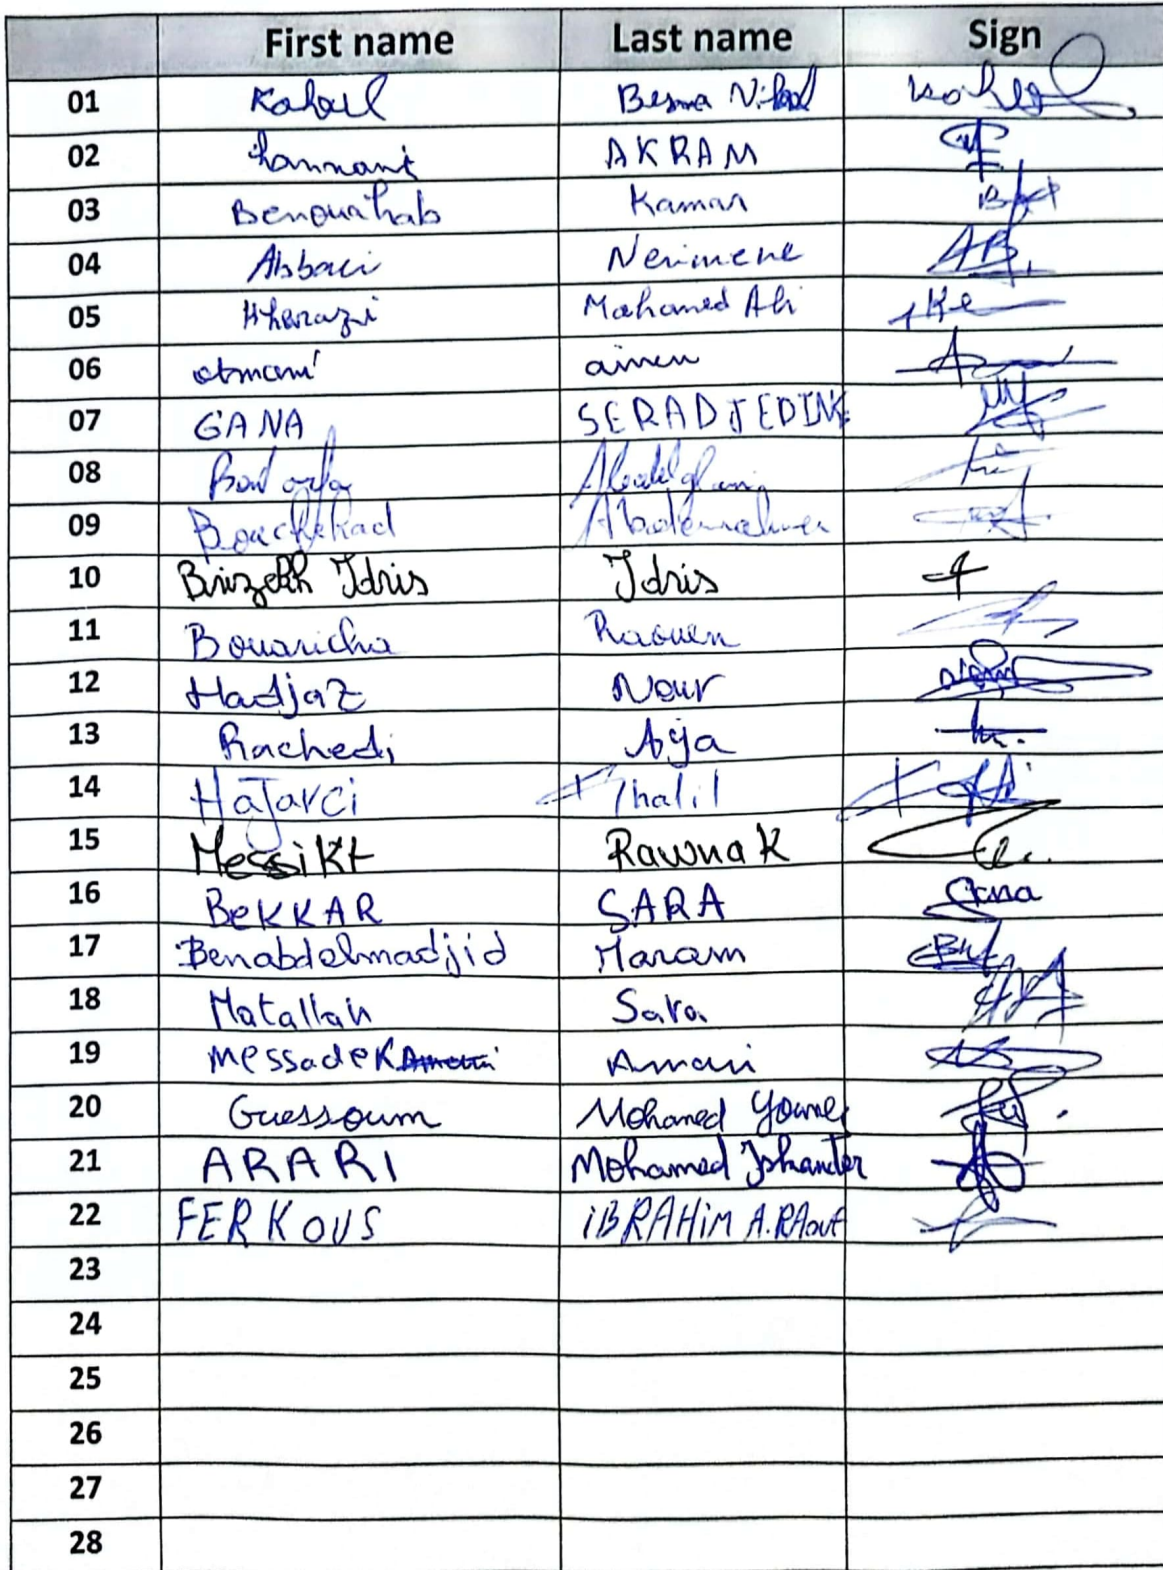 First name Last name Sign
01 Kahoul Besma Nihad
02 hannani AKRAM
03 Benouahab Kamar
04 Abbaci Nerimene
05 Kherazi Mohamed Ali
06 otmani aimen
07 GANA SERADJEDINE
08 Abdelghani
09 Bouchekad Abderrahmen
10 Brizekh Idris Idris
11 Bouaricha Raouen
12 Hadjaz Nour
13 Rachedi Aya
14 Hajarci Khalil
15 Messikt Rawnak
16 BeKKAR SARA
17 Benabdelmadjid Maram
18 Matallah Sara
19 messadek Amani Amani
20 Guessoum Mohamed Younes
21 ARARI Mohamed Iskander
22 FERKOUS iBRAHiM A.RAouf
23
24
25
26
27
28